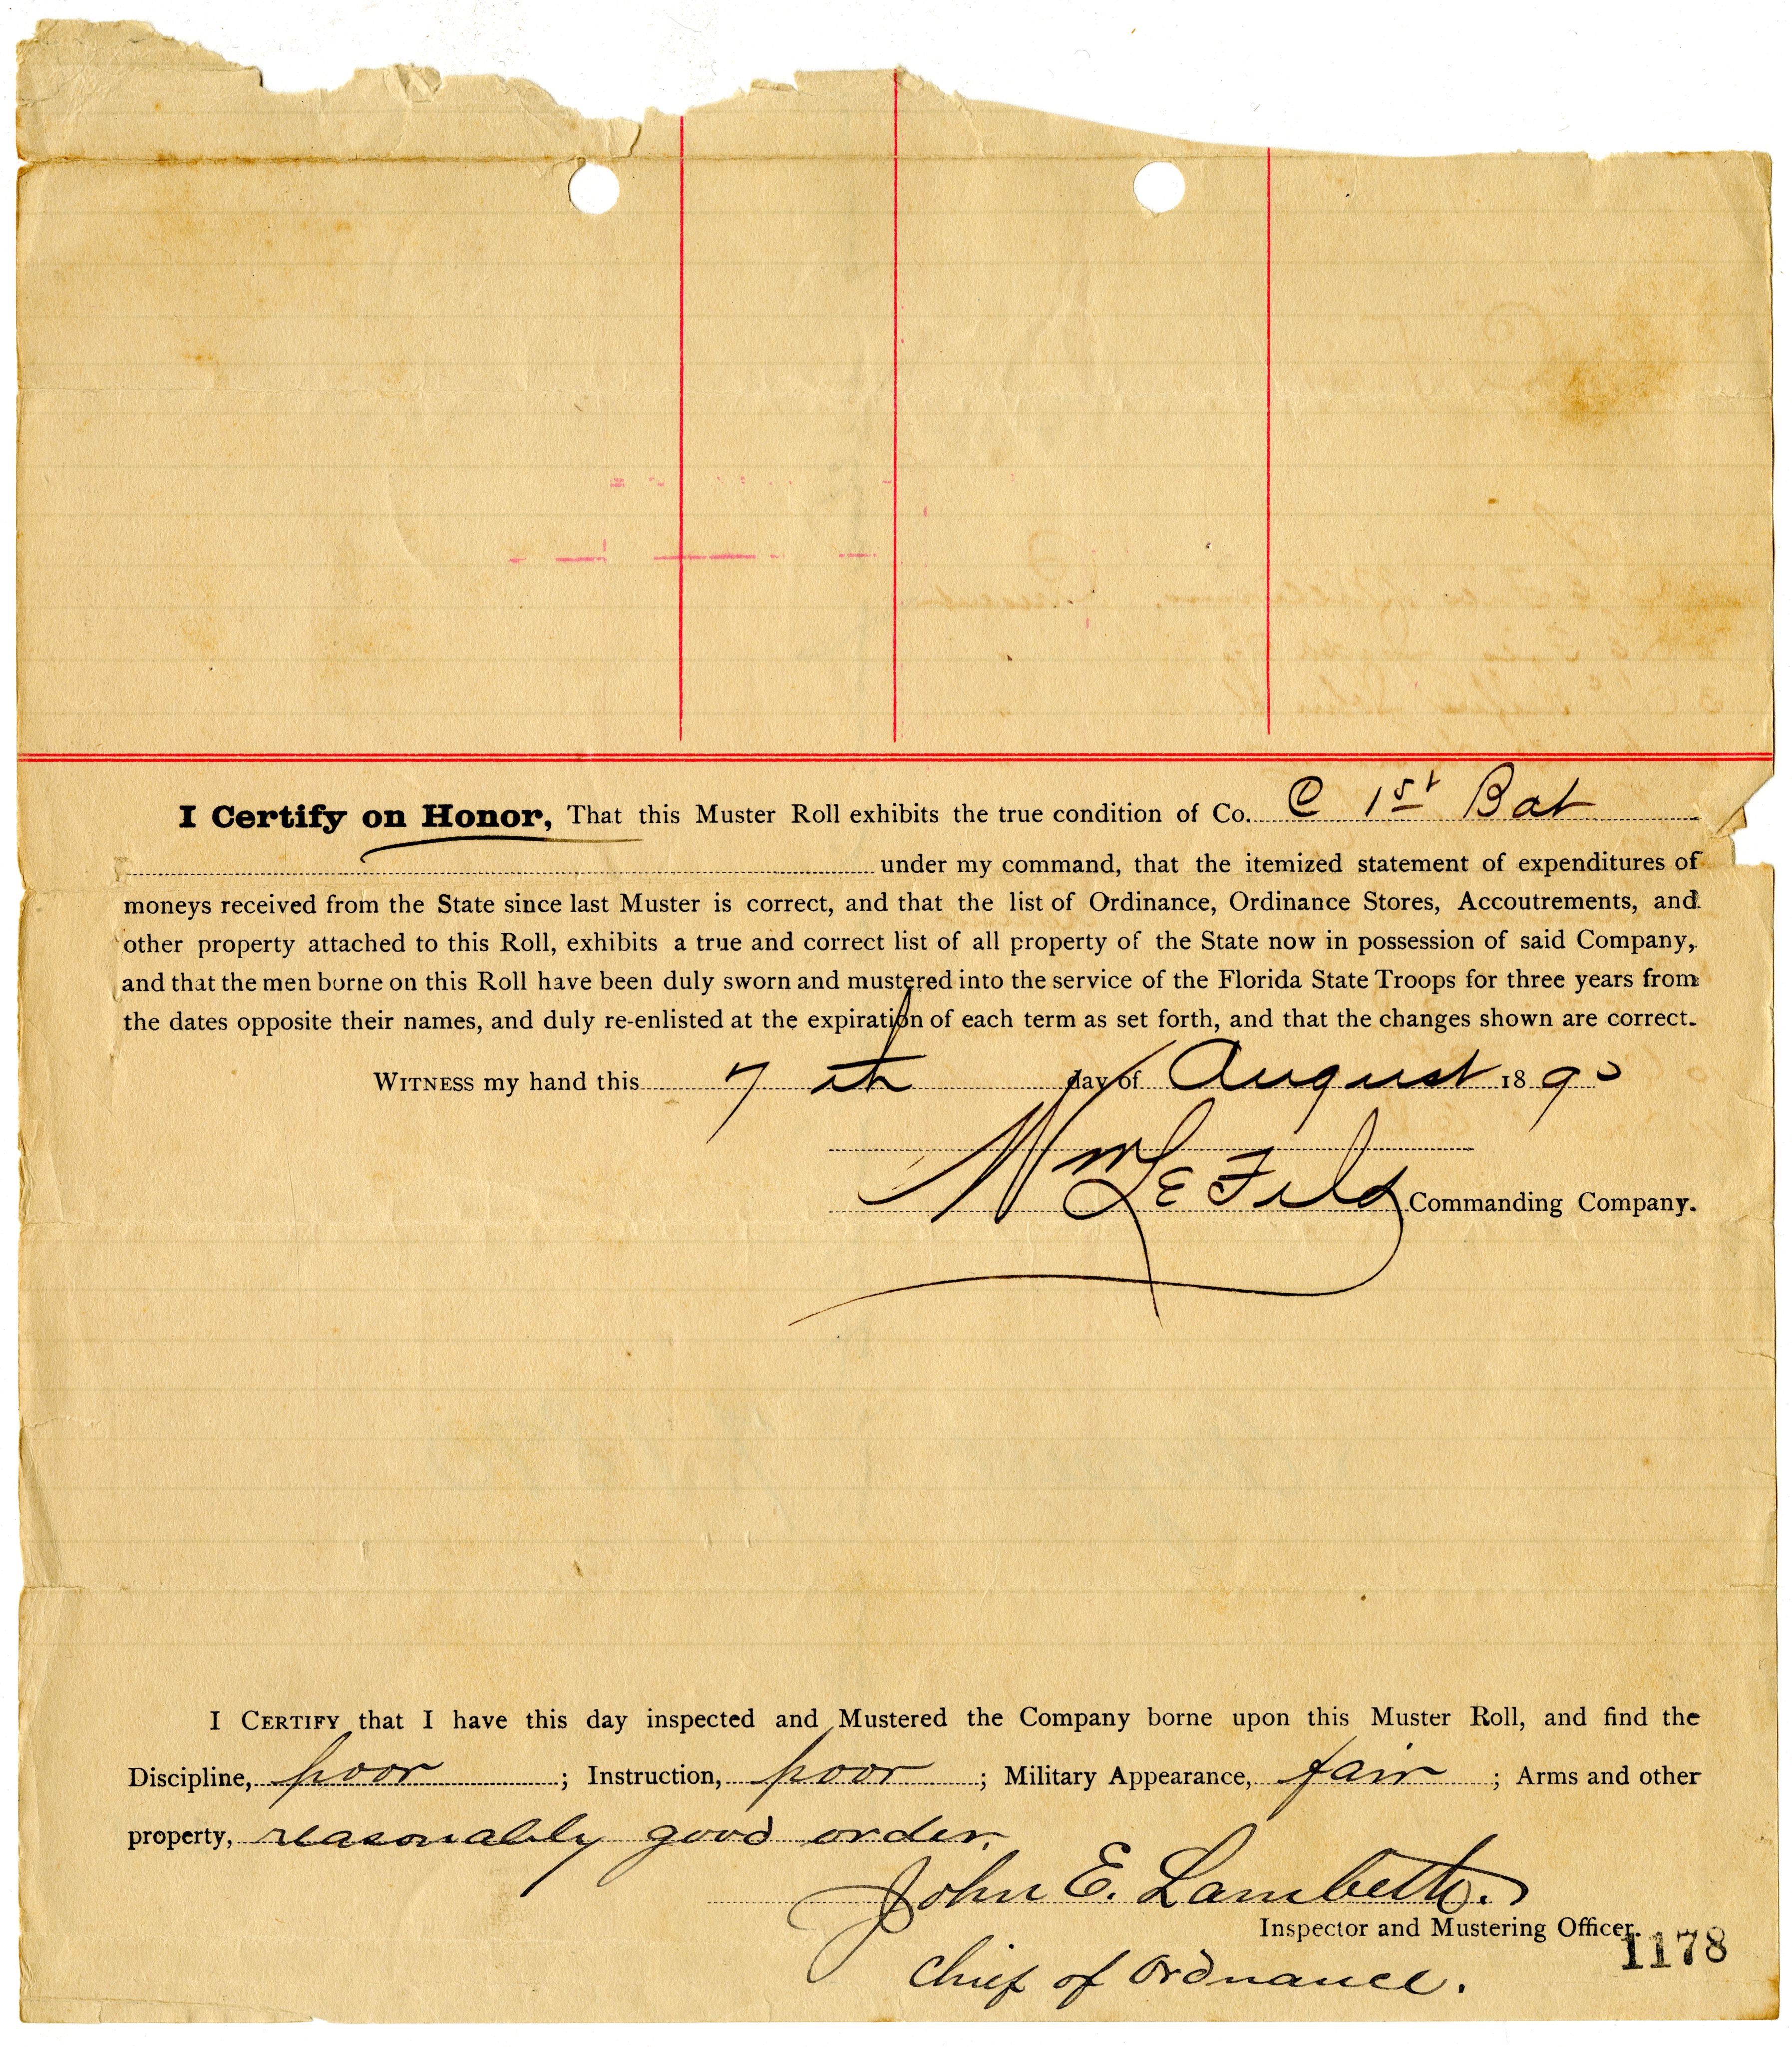 I Certify on Honor, That this Muster Roll exhibits the true condition of Co. C 1st Bat
under my command, that the itemized statement of expenditures of
moneys received from the State since last Muster is correct, and that the list of Ordinance, Ordinance Stores, Accoutrements, and
other property attached to this Roll, exhibits a true and correct list of all property of the State now in possession of said Company,
and that the men borne on this Roll have been duly sworn and mustered into the service of the Florida State Troops for three years from
the dates opposite their names, and duly re-enlisted at the expiration of each term as set forth, and that the changes shown are correct.
WITNESS my hand this 7th day of August 1890
Wm Le Fils Commanding Company.
I CERTIFY that I have this day inspected and Mustered the Company borne upon this Muster Roll, and find the
Discipline, poor ; Instruction, poor ; Military Appearance, fair ; Arms and other
property, reasonably good order.
John E. Lambeth.
Inspector and Mustering Officer.
1178
Chief of Ordnance.